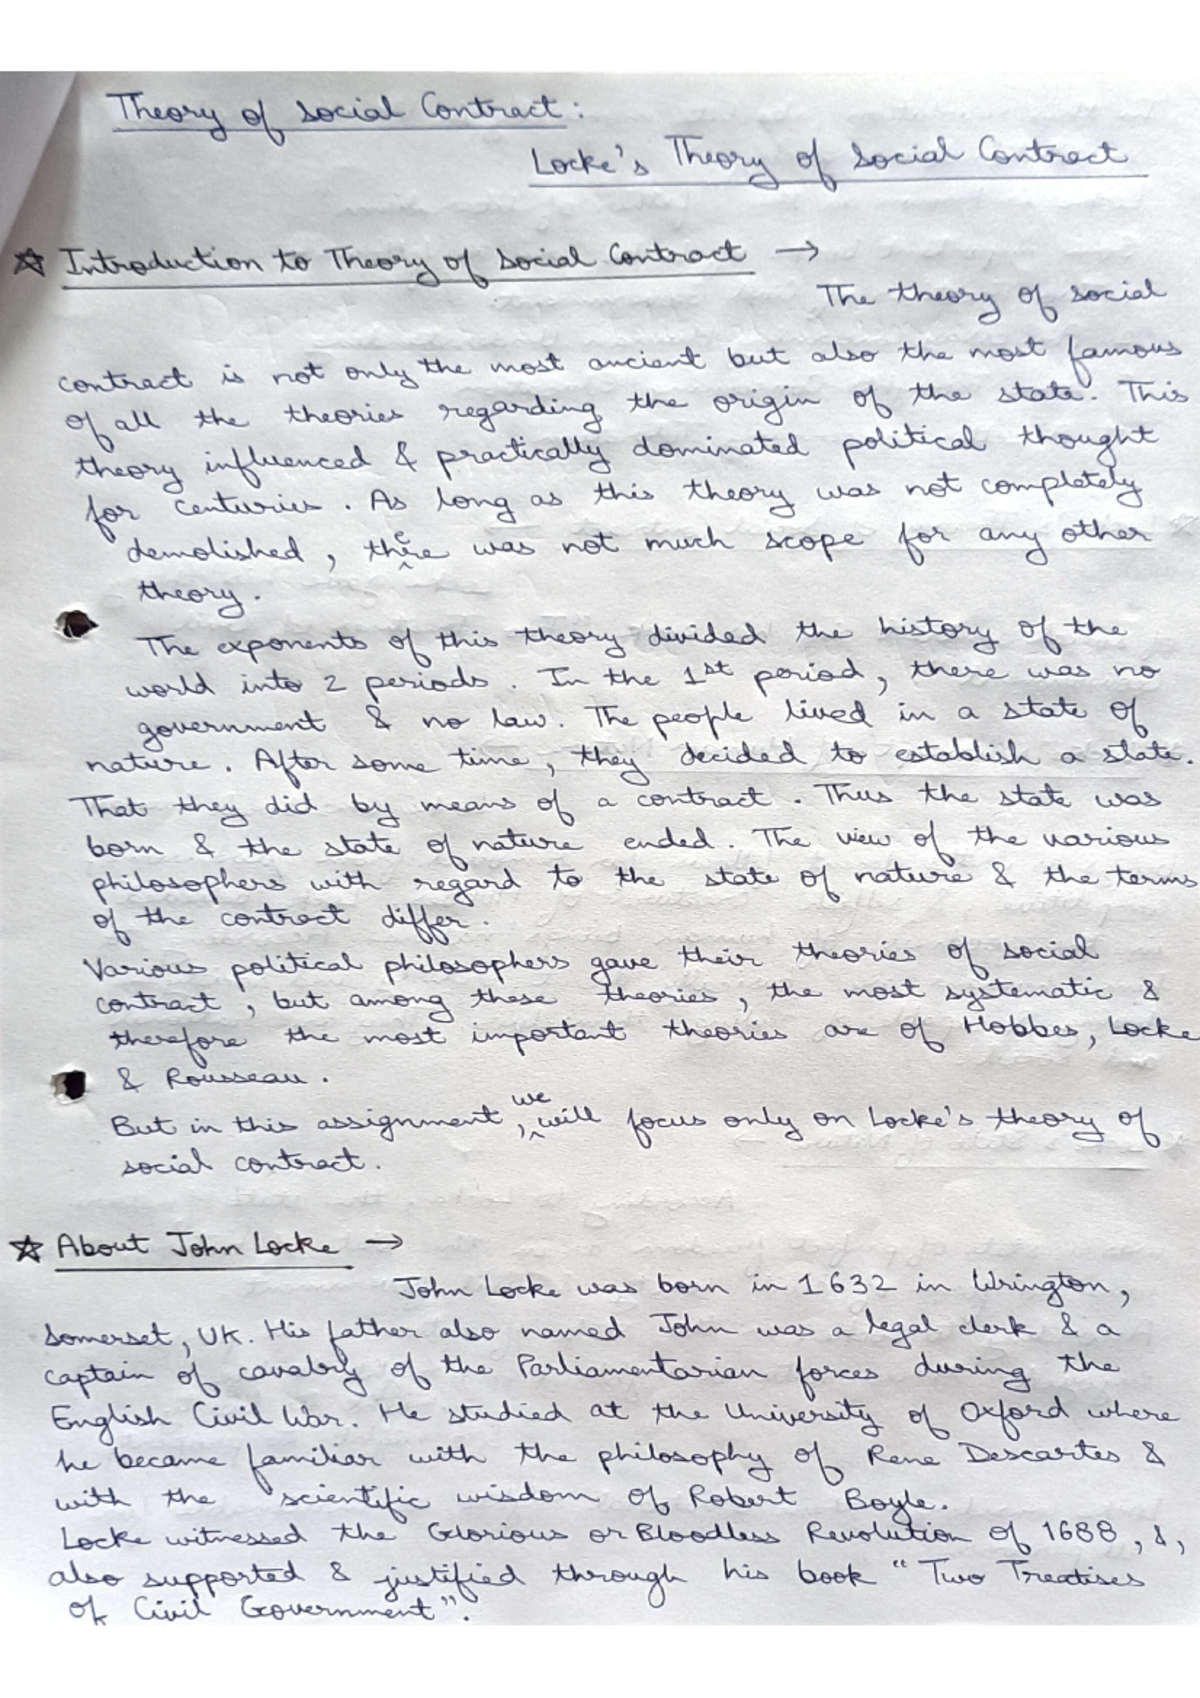 Theory of Social Contract:
Locke's Theory of Social Contract
☆ Introduction to Theory of Social Contract →
The theory of social
contract is not only the most ancient but also the most famous
of all the theories regarding the origin of the state. This
theory influenced & practically dominated political thought
for centuries. As long as this theory was not completely
demolished, there was not much scope for any other
theory.
The exponents of this theory divided the history of the
world into 2 periods. In the 1st period, there was no
government & no law. The people lived in a state of
nature. After some time, they decided to establish a state.
That they did by means of a contract. Thus the state was
born & the state of nature ended. The view of the various
philosophers with regard to the state of nature & the terms
of the contract differ.
Various political philosophers gave their theories of social
contract, but among these theories, the most systematic &
therefore the most important theories are of Hobbes, Locke
& Rousseau.
But in this assignment, we will focus only on Locke's theory of
social contract.
☆ About John Locke →
John Locke was born in 1632 in Wrington,
Somerset, UK. His father also named John was a legal clerk & a
captain of cavalry of the Parliamentarian forces during the
English Civil War. He studied at the University of Oxford where
he became familiar with the philosophy of Rene Descartes &
with the scientific wisdom of Robert Boyle.
Locke witnessed the Glorious or Bloodless Revolution of 1688, &,
also supported & justified through his book "Two Treatises
of Civil Government".